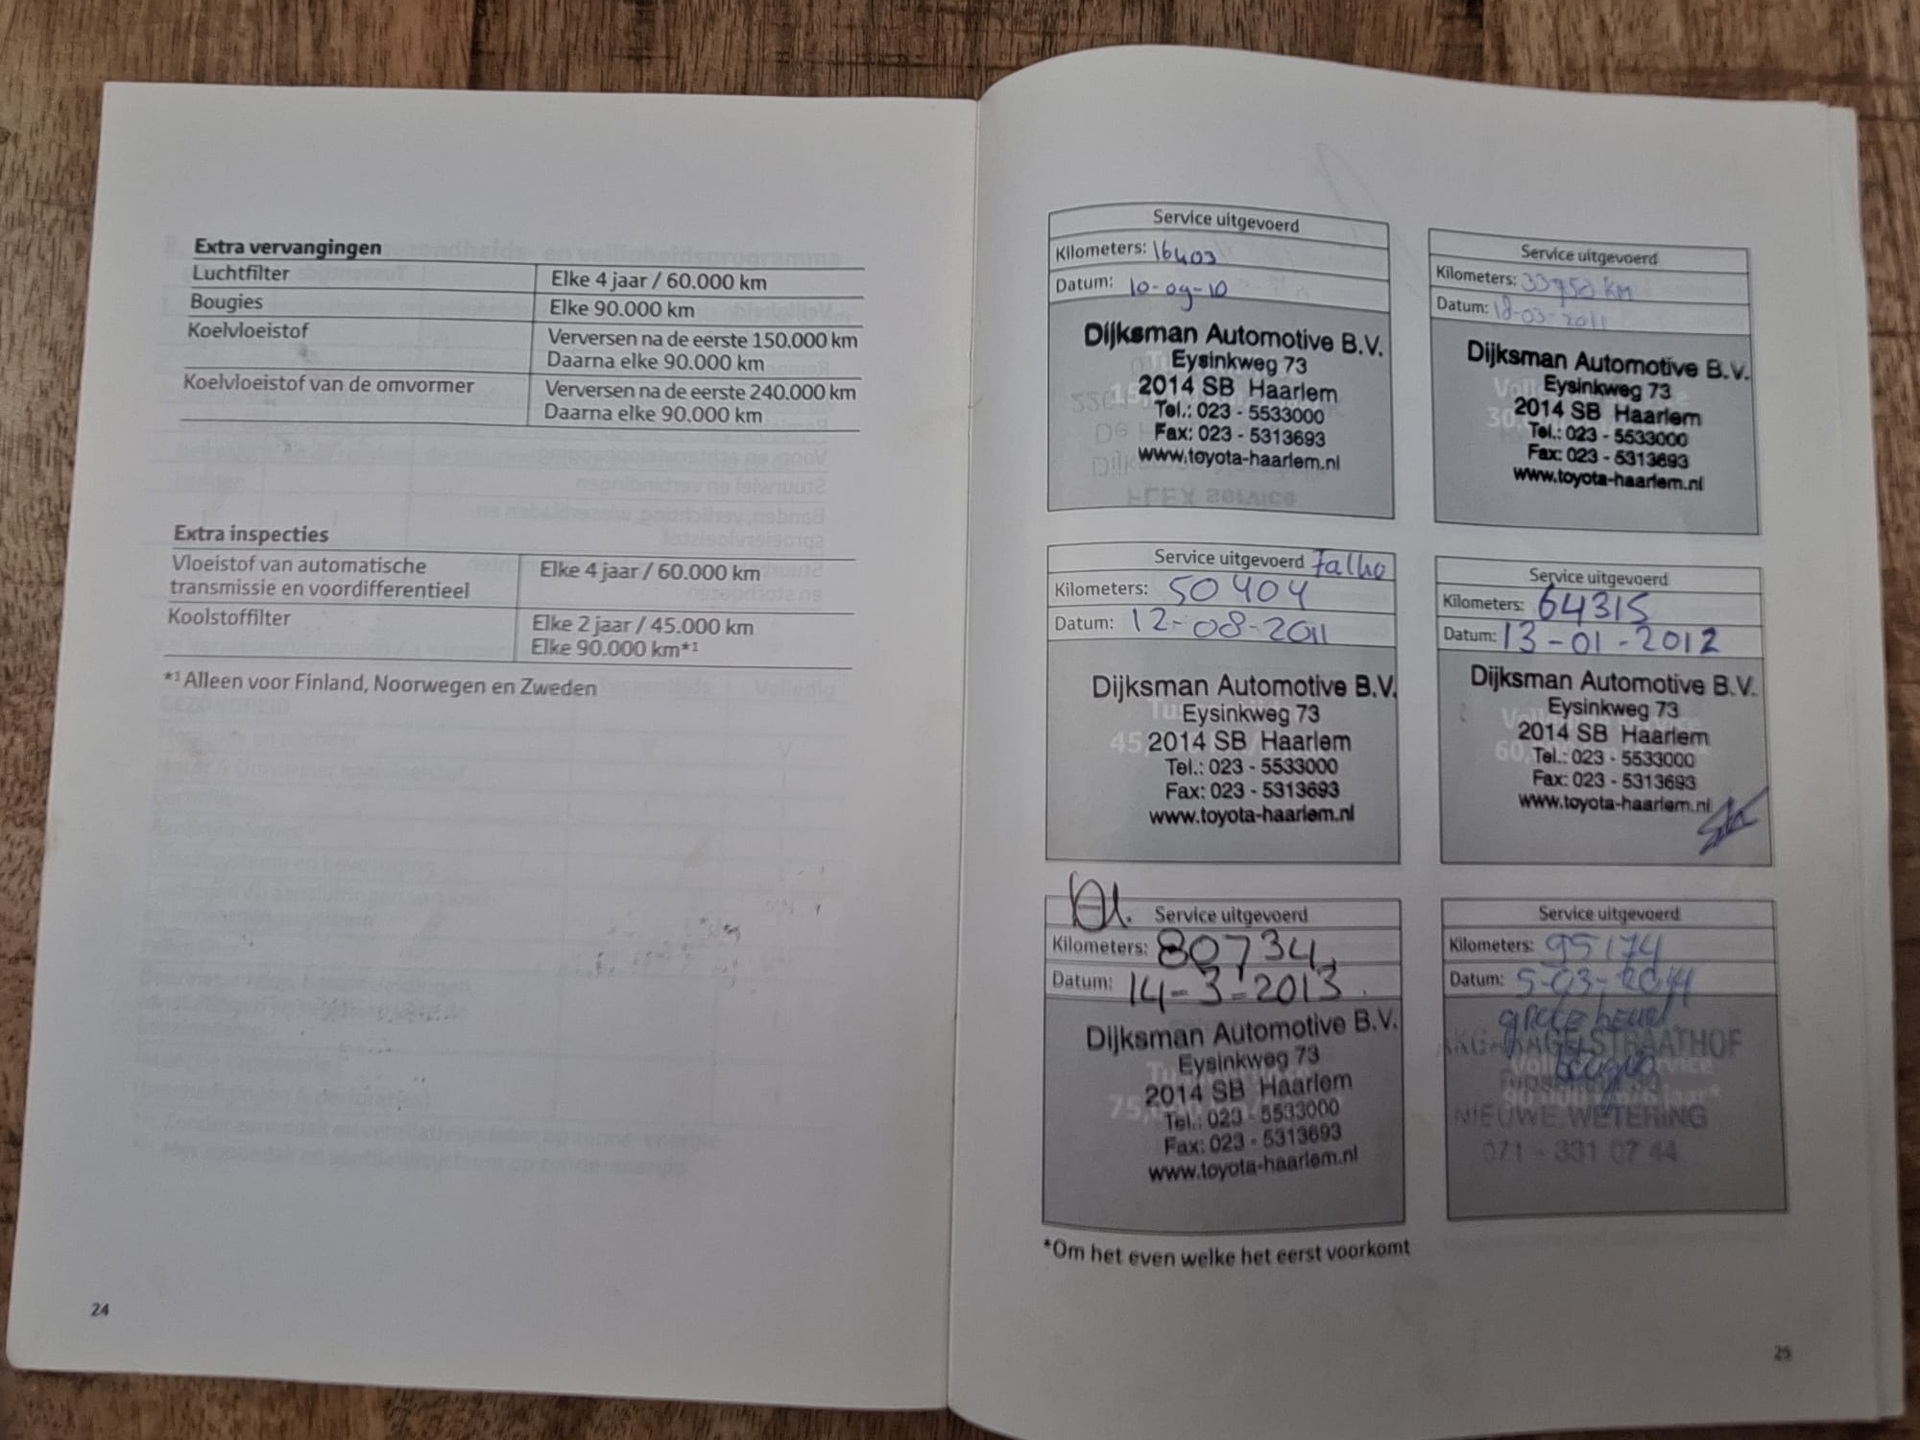 Extra vervangingen
Luchtfilter Elke 4 jaar / 60.000 km
Bougies Elke 90.000 km
Koelvloeistof Verversen na de eerste 150.000 km
Daarna elke 90.000 km
Koelvloeistof van de omvormer Verversen na de eerste 240.000 km
Daarna elke 90.000 km
Extra inspecties
Vloeistof van automatische Elke 4 jaar / 60.000 km
transmissie en voordifferentieel
Koolstoffilter Elke 2 jaar / 45.000 km
Elke 90.000 km*1
*1 Alleen voor Finland, Noorwegen en Zweden
24
Service uitgevoerd
Kilometers: 16403
Datum: 10-09-10
Dijksman Automotive B.V.
Eysinkweg 73
2014 SB Haarlem
Tel.: 023 - 5533000
Fax: 023 - 5313693
www.toyota-haarlem.nl
Service uitgevoerd
Kilometers: 33950 km
Datum: 18-03-2011
Dijksman Automotive B.V.
Eysinkweg 73
2014 SB Haarlem
Tel.: 023 - 5533000
Fax: 023 - 5313693
www.toyota-haarlem.nl
Service uitgevoerd
Kilometers: 50404
Datum: 12-08-2011
Dijksman Automotive B.V.
Eysinkweg 73
2014 SB Haarlem
Tel.: 023 - 5533000
Fax: 023 - 5313693
www.toyota-haarlem.nl
Service uitgevoerd
Kilometers: 64315
Datum: 13-01-2012
Dijksman Automotive B.V.
Eysinkweg 73
2014 SB Haarlem
Tel.: 023 - 5533000
Fax: 023 - 5313693
www.toyota-haarlem.nl
Service uitgevoerd
Kilometers: 80734
Datum: 14-3-2013
Dijksman Automotive B.V.
Eysinkweg 73
2014 SB Haarlem
Tel.: 023 - 5533000
Fax: 023 - 5313693
www.toyota-haarlem.nl
Service uitgevoerd
Kilometers: 95174
Datum: 5-03-2014
STRAATHOF
NIEUWE WETERING
071 - 331 07 44
*Om het even welke het eerst voorkomt
25